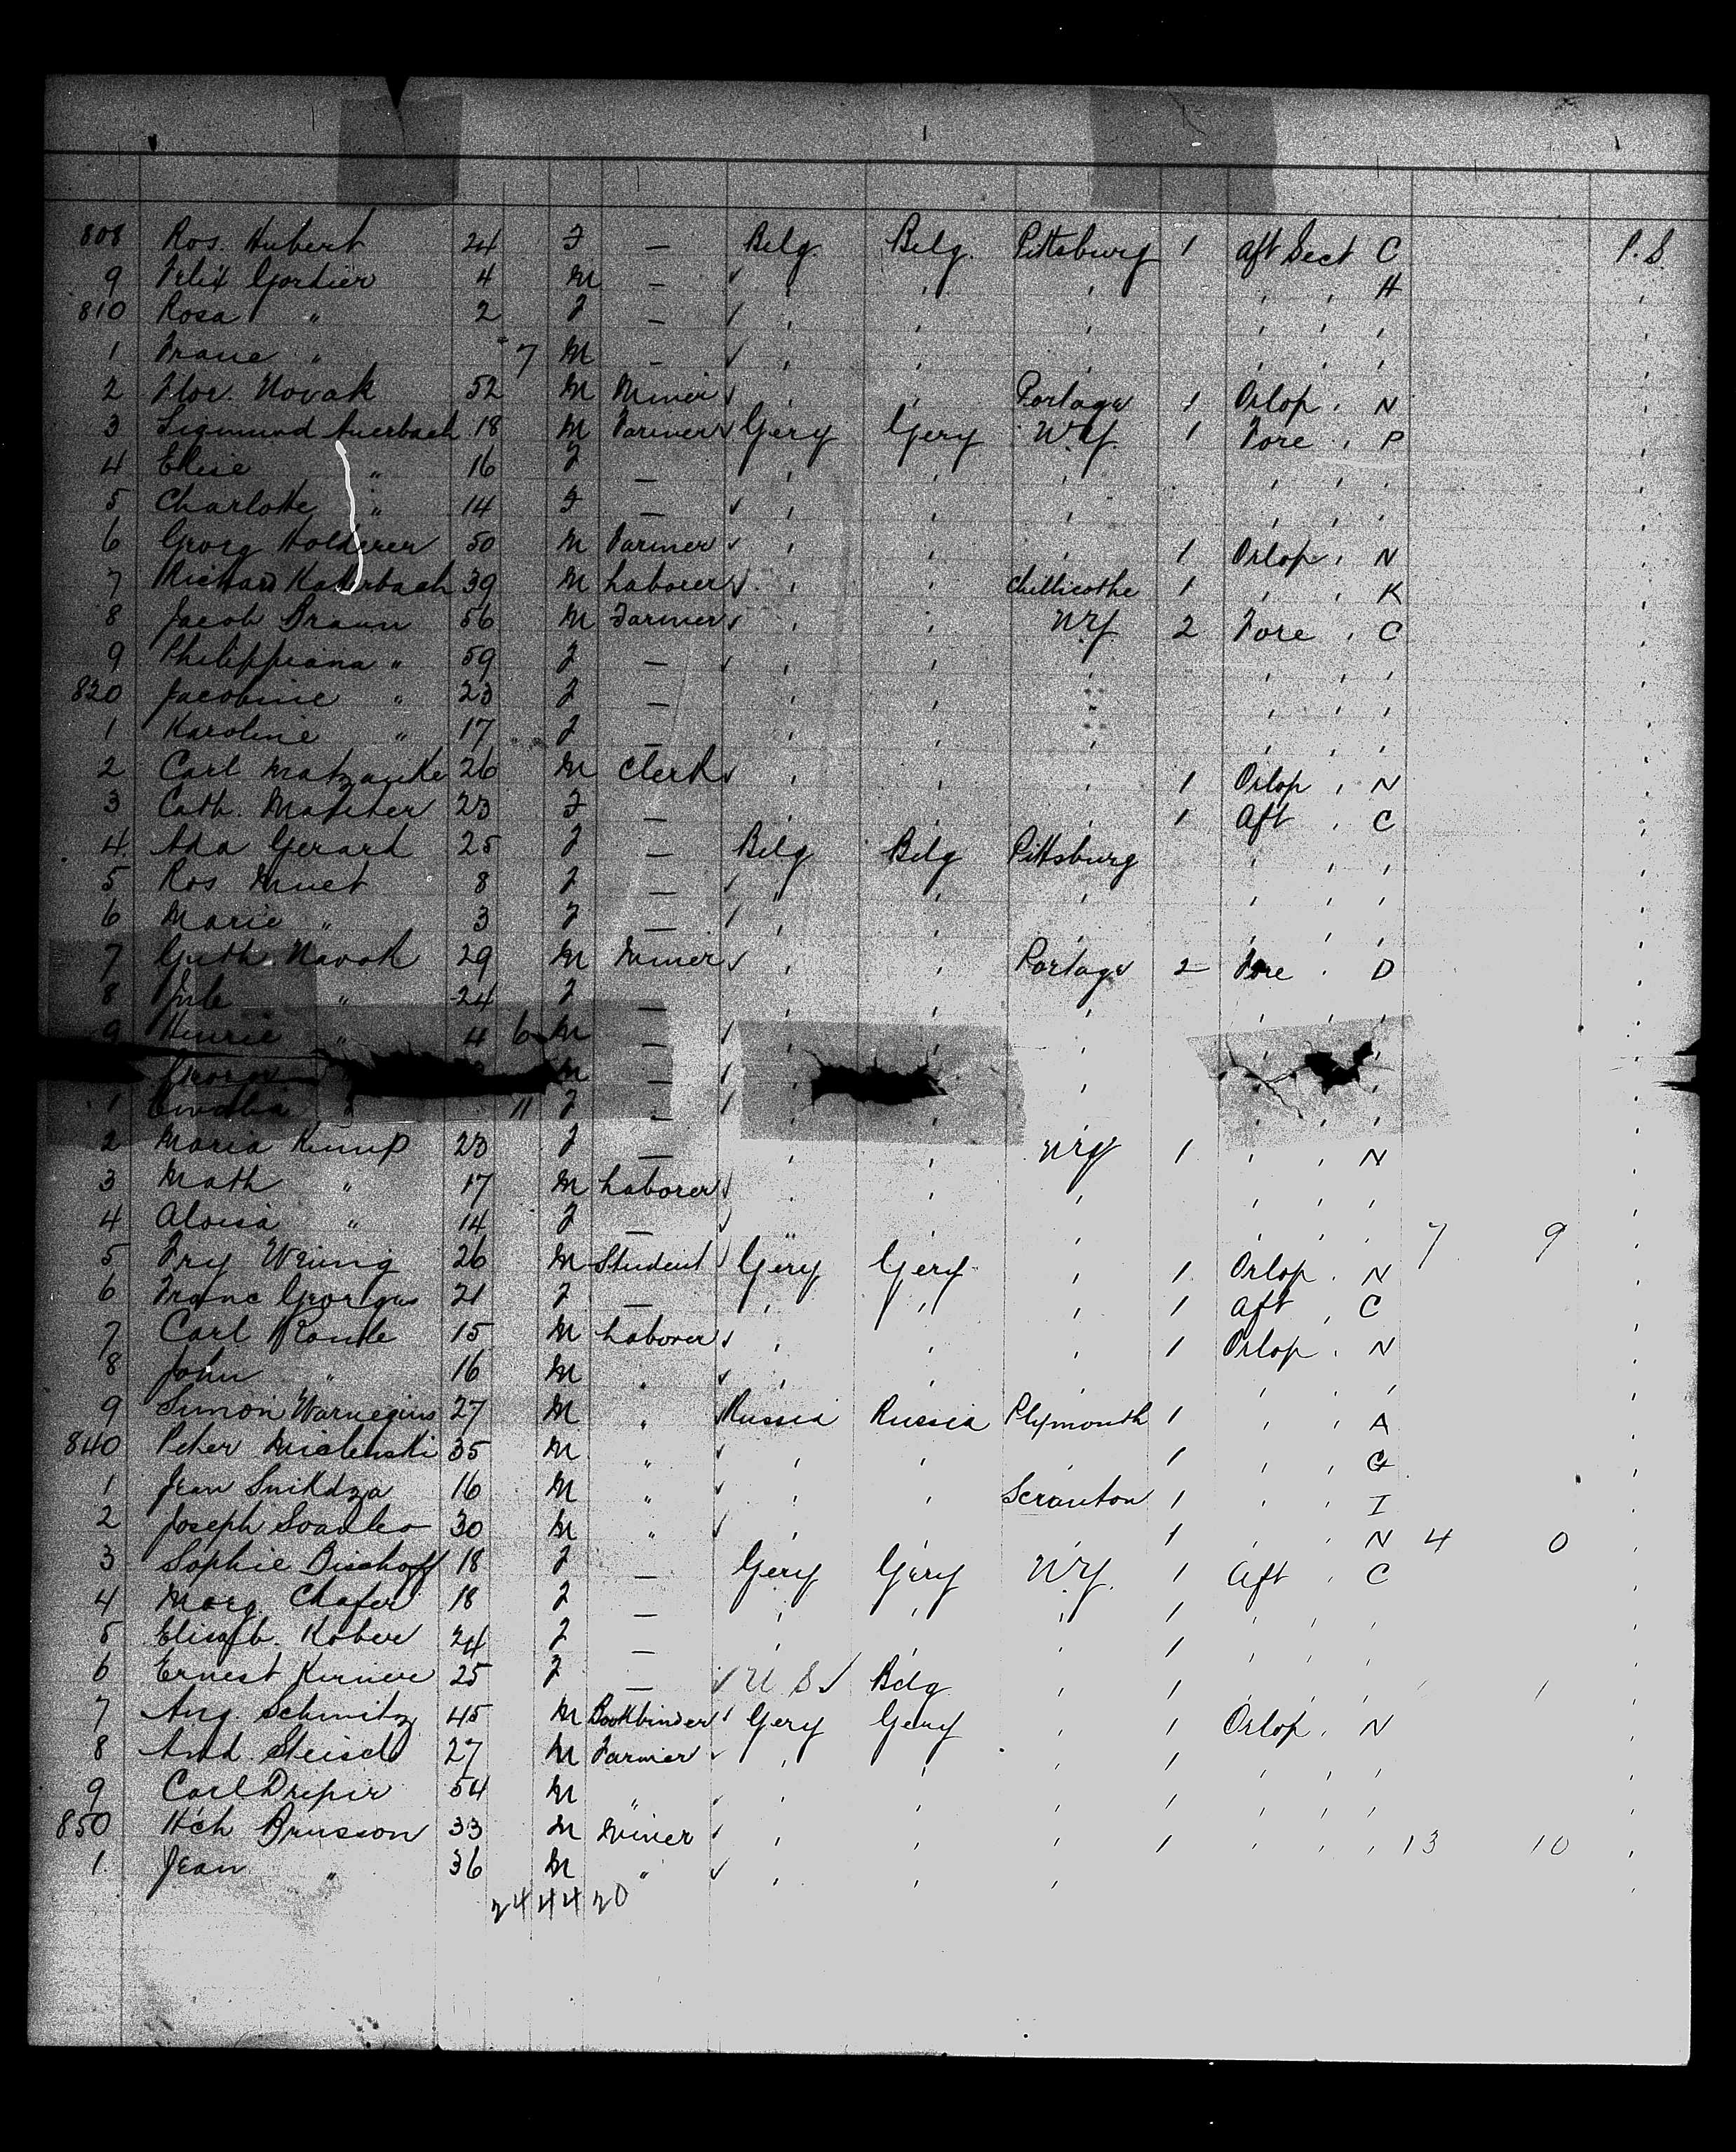 808 Ros. Hubert 24 F — Belg. Belg. Pittsburg 1 Aft Sect C P.S.
9 Felix Gordier 4 M — ✓ " " " " " H "
810 Rosa " 2 F — ✓ " " " " " " "
1 Frane " 7 M — ✓ " " " " " " "
2 Flor. Novak 52 M Miner ✓ " " Portage 1 Orlop " N "
3 Sigmund Auerbach 18 M Farmer ✓ Gery Gery N.Y. 1 Fore " P "
4 Elise " 16 F — " " " " " " "
5 Charlotte " 14 F — ✓ " " " " " " "
6 Georg Holderer 50 M Farmer ✓ " " " 1 Orlop " N "
7 Richard Kallerbach 39 M Laborer ✓ " " Chillicothe 1 " " K "
8 Jacob Braun 56 M Farmer ✓ " " N.Y. 2 Fore " C "
9 Philippiana " 59 F — ✓ " " " " " " "
820 Jacobine " 23 F — " " " " " " "
1 Karoline " 17 F — " " " " " " "
2 Carl Matzanke 26 M Clerk ✓ " " " 1 Orlop " N "
3 Cath. 23 F — " " " 1 Aft " C "
4 Ada Gerard 25 F — Belg Belg Pittsburg " " " "
5 Ros. Muet 8 F — ✓ " " " " " " "
6 Marie " 3 F — ✓ " " " " " " "
7 Novak 29 M Miner ✓ " " Portage 2 Fore " D "
8 " 24 F — " " " " " " "
9 Henrie " 4 6 M — ✓ " " " " " " "
M — ✓ " " " "
1 " 11 F — ✓ " " " " " "
2 Maria Kump 20 F — " " N.Y. 1 " " N "
3 Math " 17 M Laborer ✓ " " " " " " "
4 Aloisa " 14 F — ✓ " " " " " " 7 9 "
5 Fry Wening 26 M Student ✓ Gery Gery " 1 Orlop " N "
6 Franc Georges 21 F — " " " 1 Aft " C "
7 Carl Rande 15 M Laborer ✓ " " " 1 Orlop " N "
8 John " 16 M " ✓ " " " " " " "
9 Simon Warnegius 27 M " ✓ Russia Russia Plymouth 1 " " A "
840 Peter Mislenski 35 M " ✓ " " " 1 " " G "
1 Jean Snikdza 16 M " ✓ " " Scranton 1 " " I "
2 Joseph 30 M " ✓ " " " 1 " " N 4 0 "
3 Sophie Bischoff 18 F — Gery Gery N.Y. 1 Aft " C "
4 Marg Chafer 18 F — " " " 1 " " " "
5 Elisafb. Kober 24 F — " " " 1 " " " "
6 Ernest 25 F — ✓ U S ✓ Belg " 1 " " " 1 "
7 Aug. Schmitz 45 M Bookbinder ✓ Gery Gery " 1 Orlop " N "
8 And. 27 M Farmer ✓ " " " 1 " " " "
9 Carl 54 M " ✓ " " " 1 " " " "
850 Hch Brusson 33 M Miner ✓ " " " 1 " " " 13 10 "
1 Jean " 36 M " ✓ " " " "
24 44 20